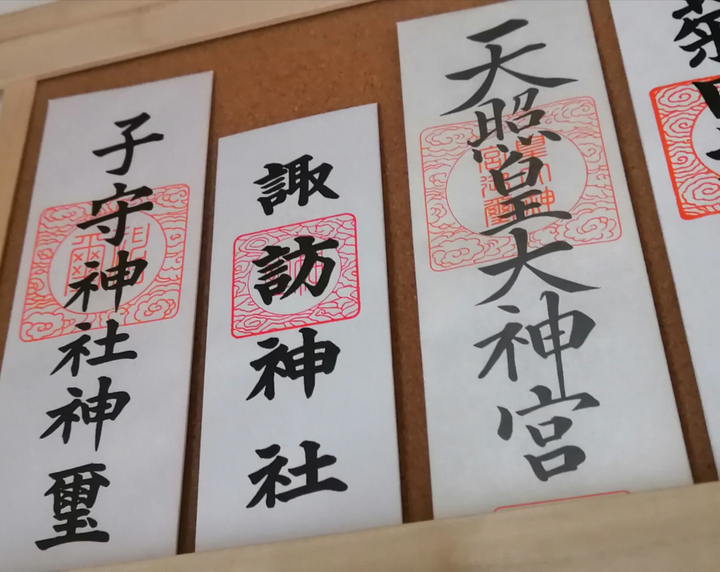 子守神社神璽
諏訪神社
天照皇大神宮